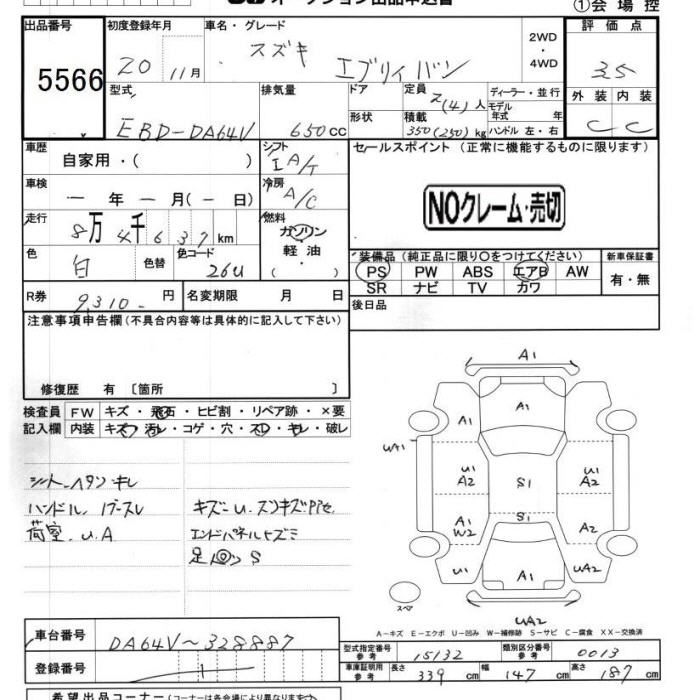 ①会場控
出品番号 初度登録年月 車名・グレード 評価点
5566 20 11月 スズキ エブリィバン 2WD・4WD 3.5
型式 排気量 ドア 定員 2(4)人 ディーラー・並行 外装 内装
モデル年式 年
EBD-DA64V 650cc 形状 積載 350(250)kg ハンドル 左・右 C C
車歴 自家用・( ) シフト IA/T セールスポイント (正常に機能するものに限ります)
車検 ー年ー月(ー日) 冷房 A/C
NOクレーム・売切
走行 8万4千637km 燃料 ガソリン
軽油・( )
色 白 色替 色コード 26U 装備品 (純正品に限り○をつけてください) 新車保証書
PS PW ABS エアB AW 有・無
SR ナビ TV カワ
R券 9,310- 円 名変期限 月 日 後日品
注意事項申告欄(不具合内容等は具体的に記入して下さい)
修復歴 有 〔箇所 〕
検査員 FW キズ・飛石・ヒビ割・リペア跡・×要
記入欄 内装 キズ・汚レ・コゲ・穴・スレ・キレ・破レ
A1
A1
A1 A1
UA1
U1 A2 S1 U1 A2
S1
A1 W2 A2
U1 A1 UA2
スペア
UA2
ハンドル
荷室. U.A キズ U.
エンドパネル
S
A-キズ E-エクボ U-凹み W-補修跡 S-サビ C-腐食 XX-交換済
車台番号 DA64V~328887
型式指定番号 参考 15132 類別区分番号 参考 0013
登録番号
車庫証明用 参考 長さ 339cm 幅 147cm 高さ 187cm
希望出品コーナー(コーナーは各会場により異なります)